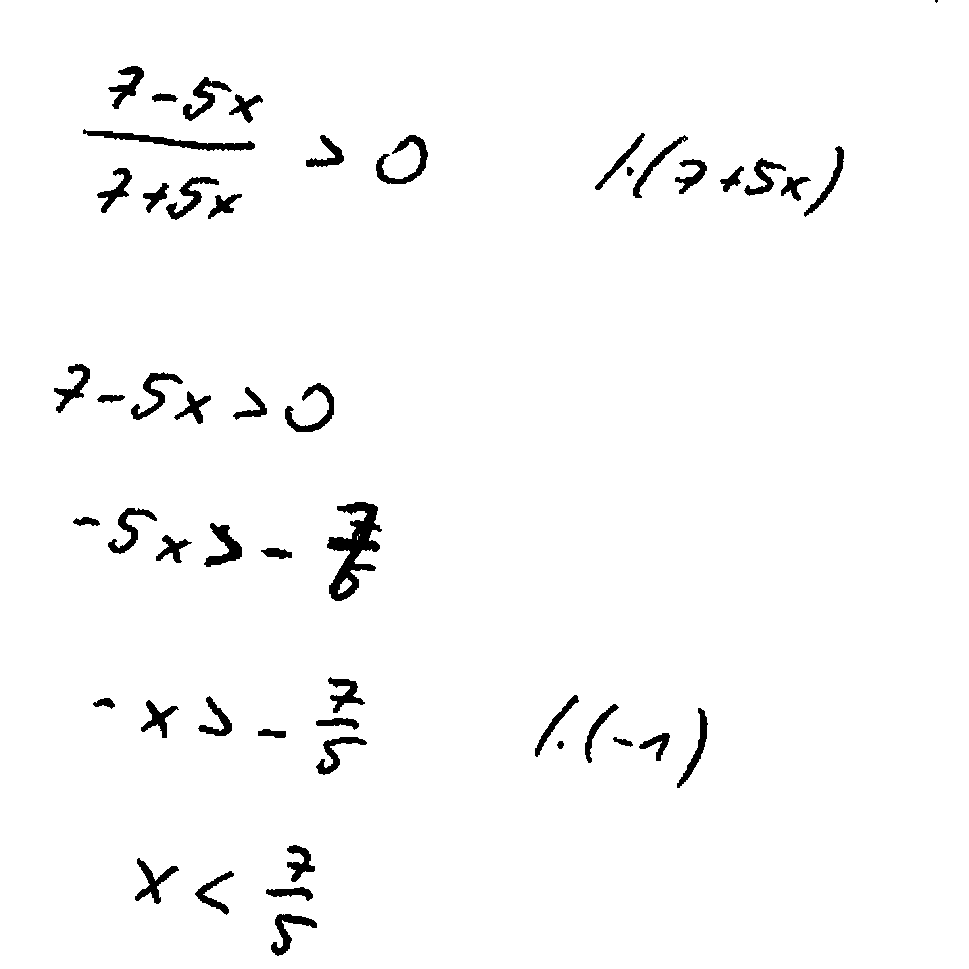 (7-5x)/(7+5x) > 0 /·(7+5x)
7-5x > 0
-5x > -
-x > - 7/5 /·(-1)
x < 7/5